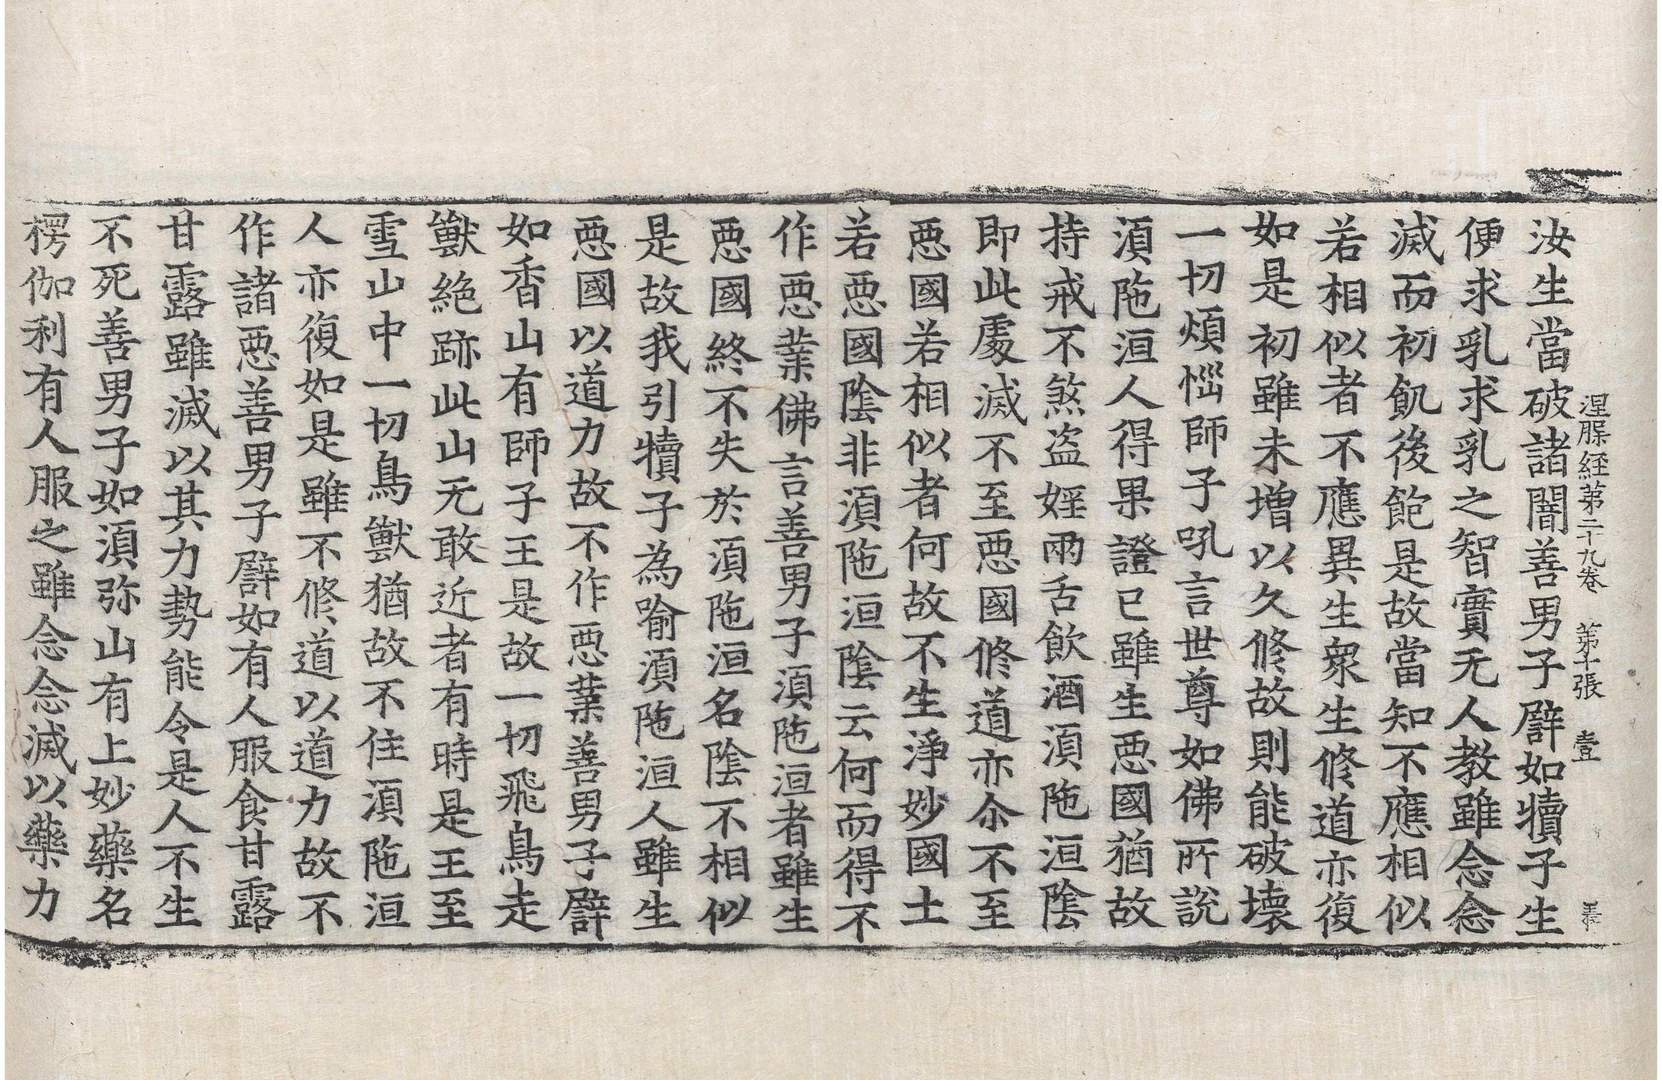 涅槃経第二十九卷 第十張 壹
汝生當破諸闇善男子譬如犢子生
便求乳求乳之智實无人教雖念念
滅而初飢後飽是故當知不應相似
若相似者不應異生衆生修道亦復
如是初雖未增以久修故則能破壞
一切煩惱師子吼言世尊如佛所說
湏陁洹人得果證已雖生惡國猶故
持戒不煞盜婬兩舌飲酒湏陁洹陰
即此處滅不至惡國修道亦尒不至
惡國若相似者何故不生淨妙國土
若惡國陰非湏陁洹陰云何而得不
作惡業佛言善男子湏陁洹者雖生
惡國終不失於湏陁洹名陰不相似
是故我引犢子為喻湏陁洹人雖生
惡國以道力故不作惡業善男子譬
如香山有師子王是故一切飛鳥走
獸絶跡此山无敢近者有時是王至
雪山中一切鳥獸猶故不住湏陁洹
人亦復如是雖不修道以道力故不
作諸惡善男子譬如有人服食甘露
甘露雖滅以其力勢能令是人不生
不死善男子如湏弥山有上妙藥名
楞伽利有人服之雖念念滅以藥力